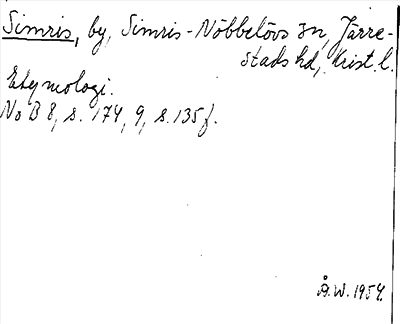 Simris, by, Simris-Nöbbelövs sn, Järre-
stads hd, Krist. l.
Etymologi.
No B 8, s. 174, 9, s. 135 f.
Å. W. 1954.